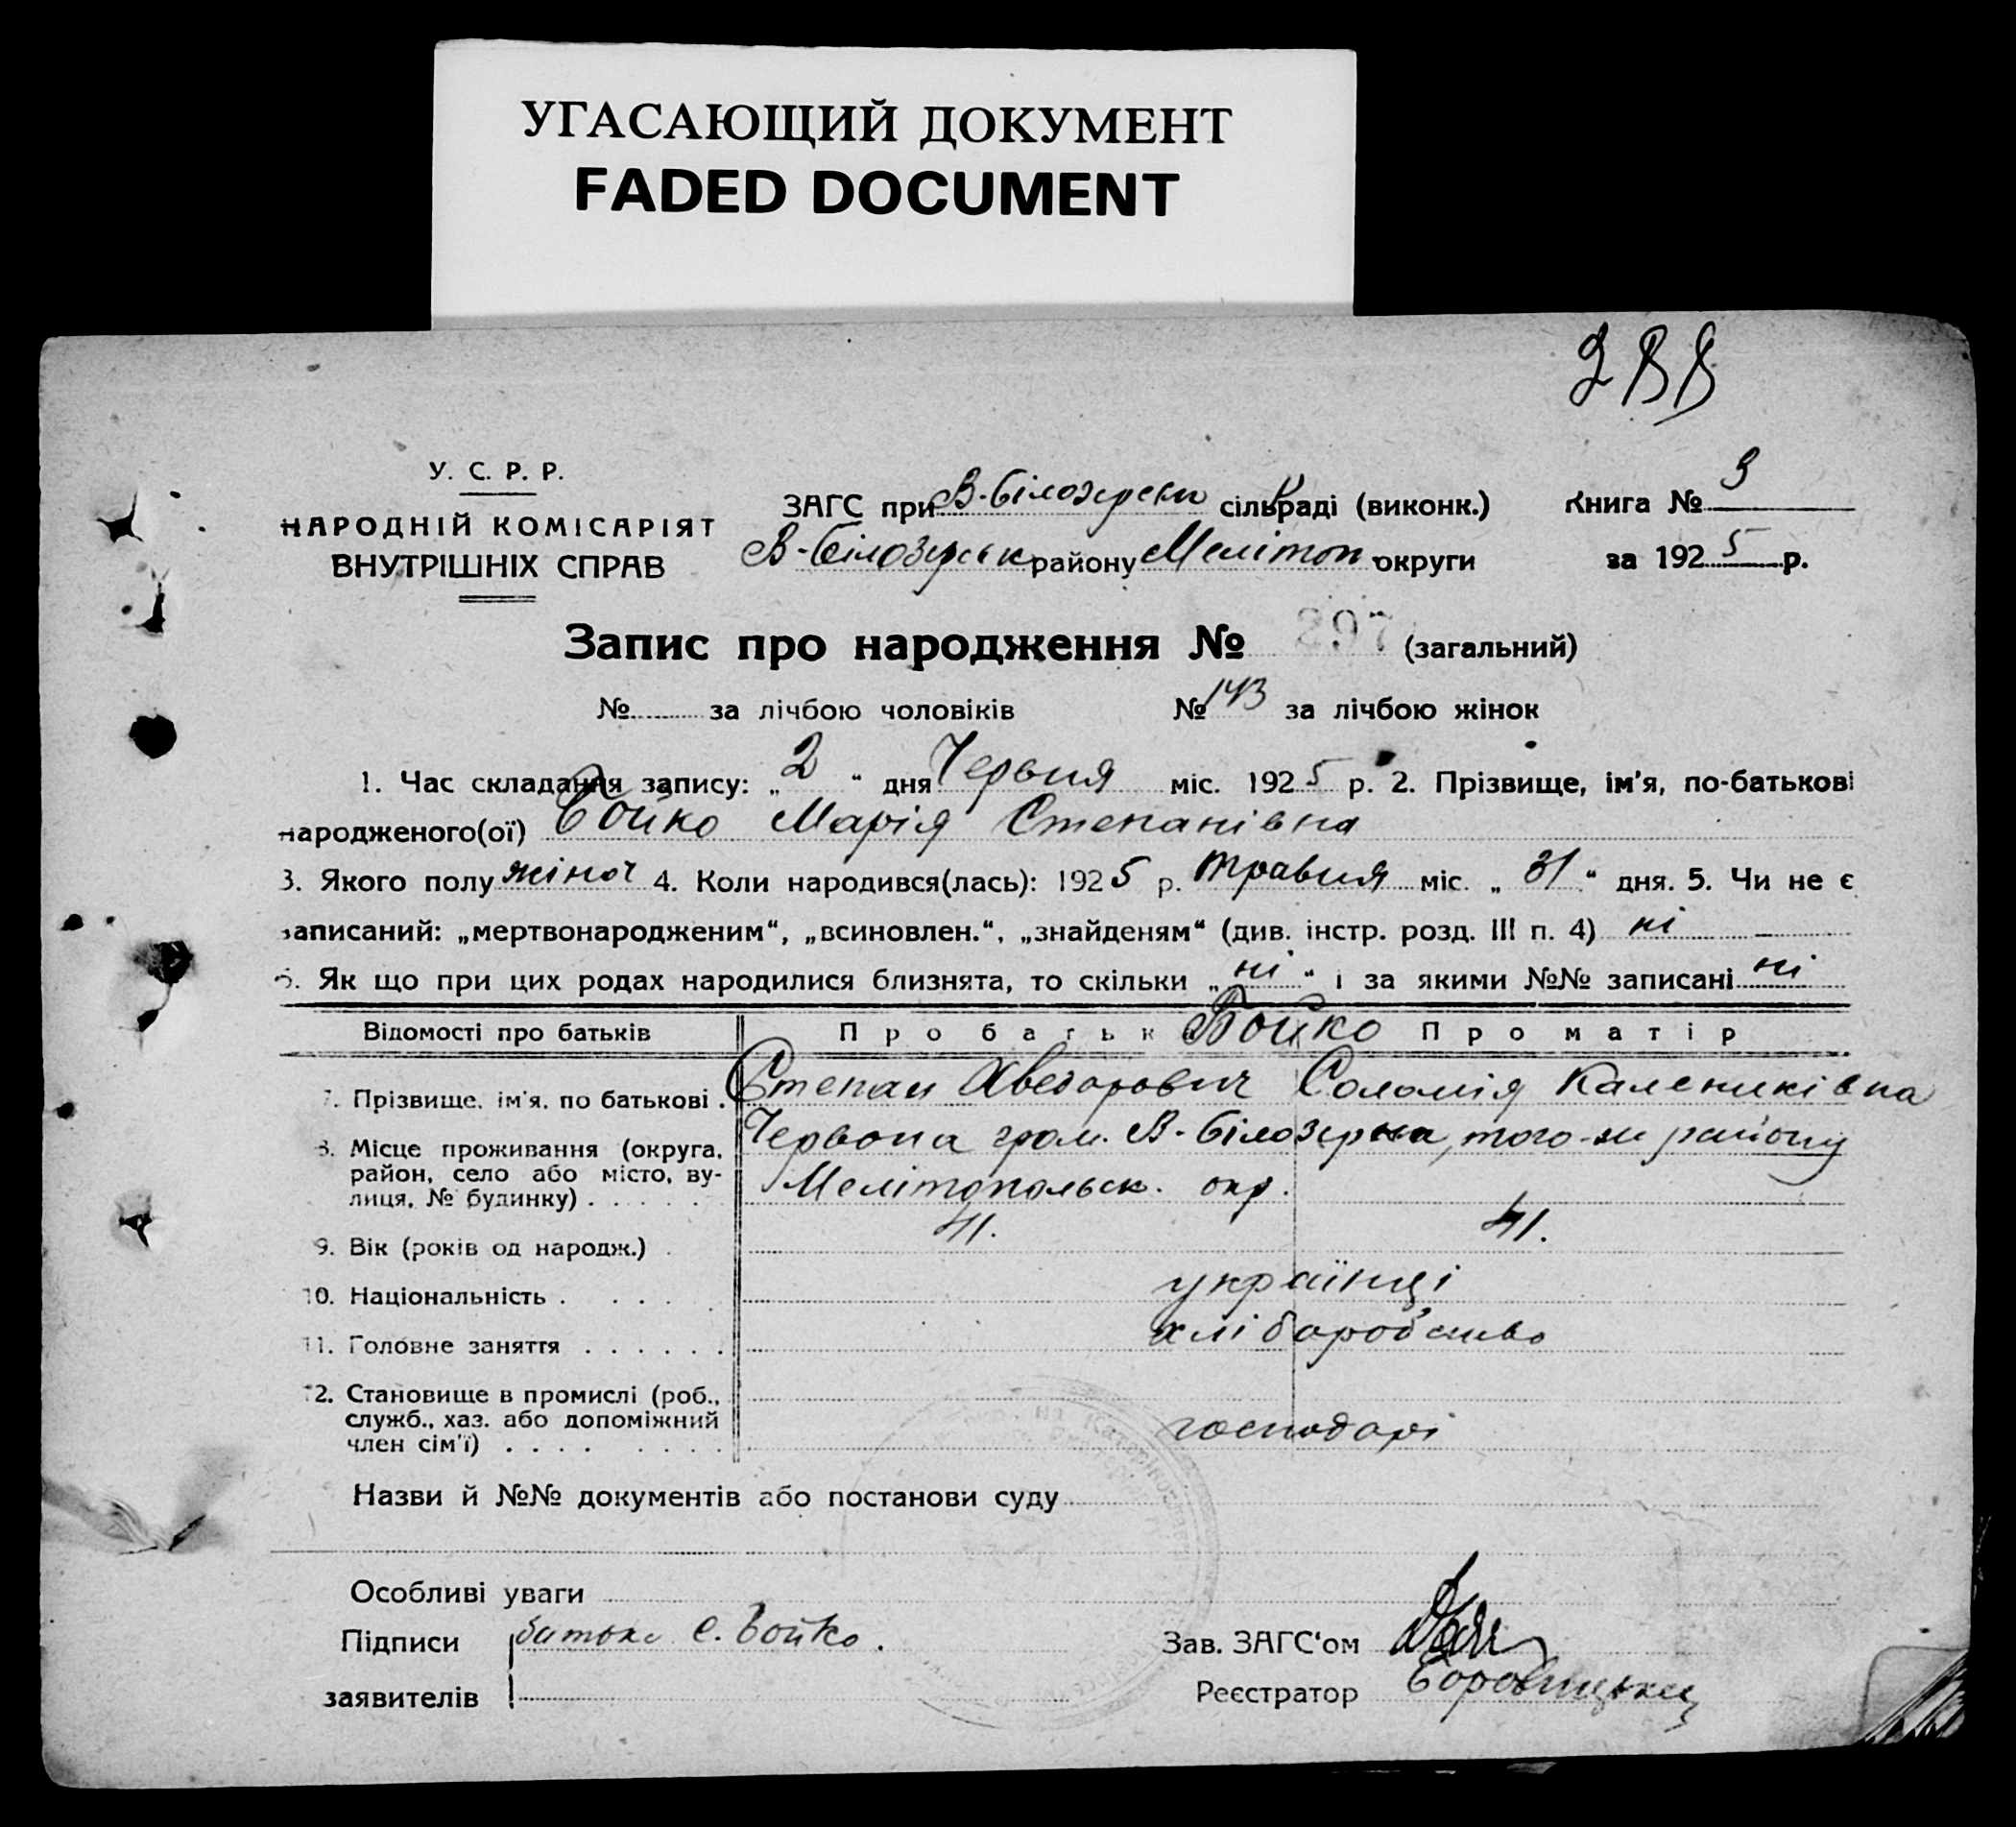 УГАСАЮЩИЙ ДОКУМЕНТ
FADED DOCUMENT
У. С. Р. Р.
НАРОДНІЙ КОМІСАРІЯТ
ВНУТРІШНІХ СПРАВ
ЗАГС при В-Білозерськ сільраді (виконк.)
В-Білозерськ району Мелітоп округи
Книга № 3
за 1925 р.
Запис про народження № 297 (загальний)
№ за лічбою чоловіків № 143 за лічбою жінок
1. Час складання запису: „ 2 “ дня Червня міс. 1925 р. 2. Прізвище, ім’я, по-батькові
народженого(ої) Бойко Марія Степанівна
3. Якого полу жіноч 4. Коли народився(лась): 1925 р. травня міс. „ 31 “ дня. 5. Чи не є
записаний: „мертвонародженим“, „всиновлен.“, „знайденям“ (див. інстр. розд. III п. 4) ні
6. Як що при цих родах народилися близнята, то скільки „ ні “ і за якими №№ записані ні
Відомості про батьків Про батьк Бойко Про матір
7. Прізвище, ім’я, по батькові . Степан Хведорович Соломія Калениківна
8. Місце проживання (округа, район, село або місто, вулиця, № будинку) . . . . . Червона гром. В-Білозерка, того-ж району
Мелітопольск. окр.
9. Вік (років од народж.) . 41. 41.
10. Національність . . . . . українці
11. Головне заняття . . . . . . хліборобство
12. Становище в промислі (роб.,
служб., хаз. або допоміжний
член сім’ї) . . . . . . . . господарі
Назви й №№ документів або постанови суду
Особливі уваги
Підписи батько С. Бойко.
заявителів
Зав. ЗАГС‘ом
Реєстратор